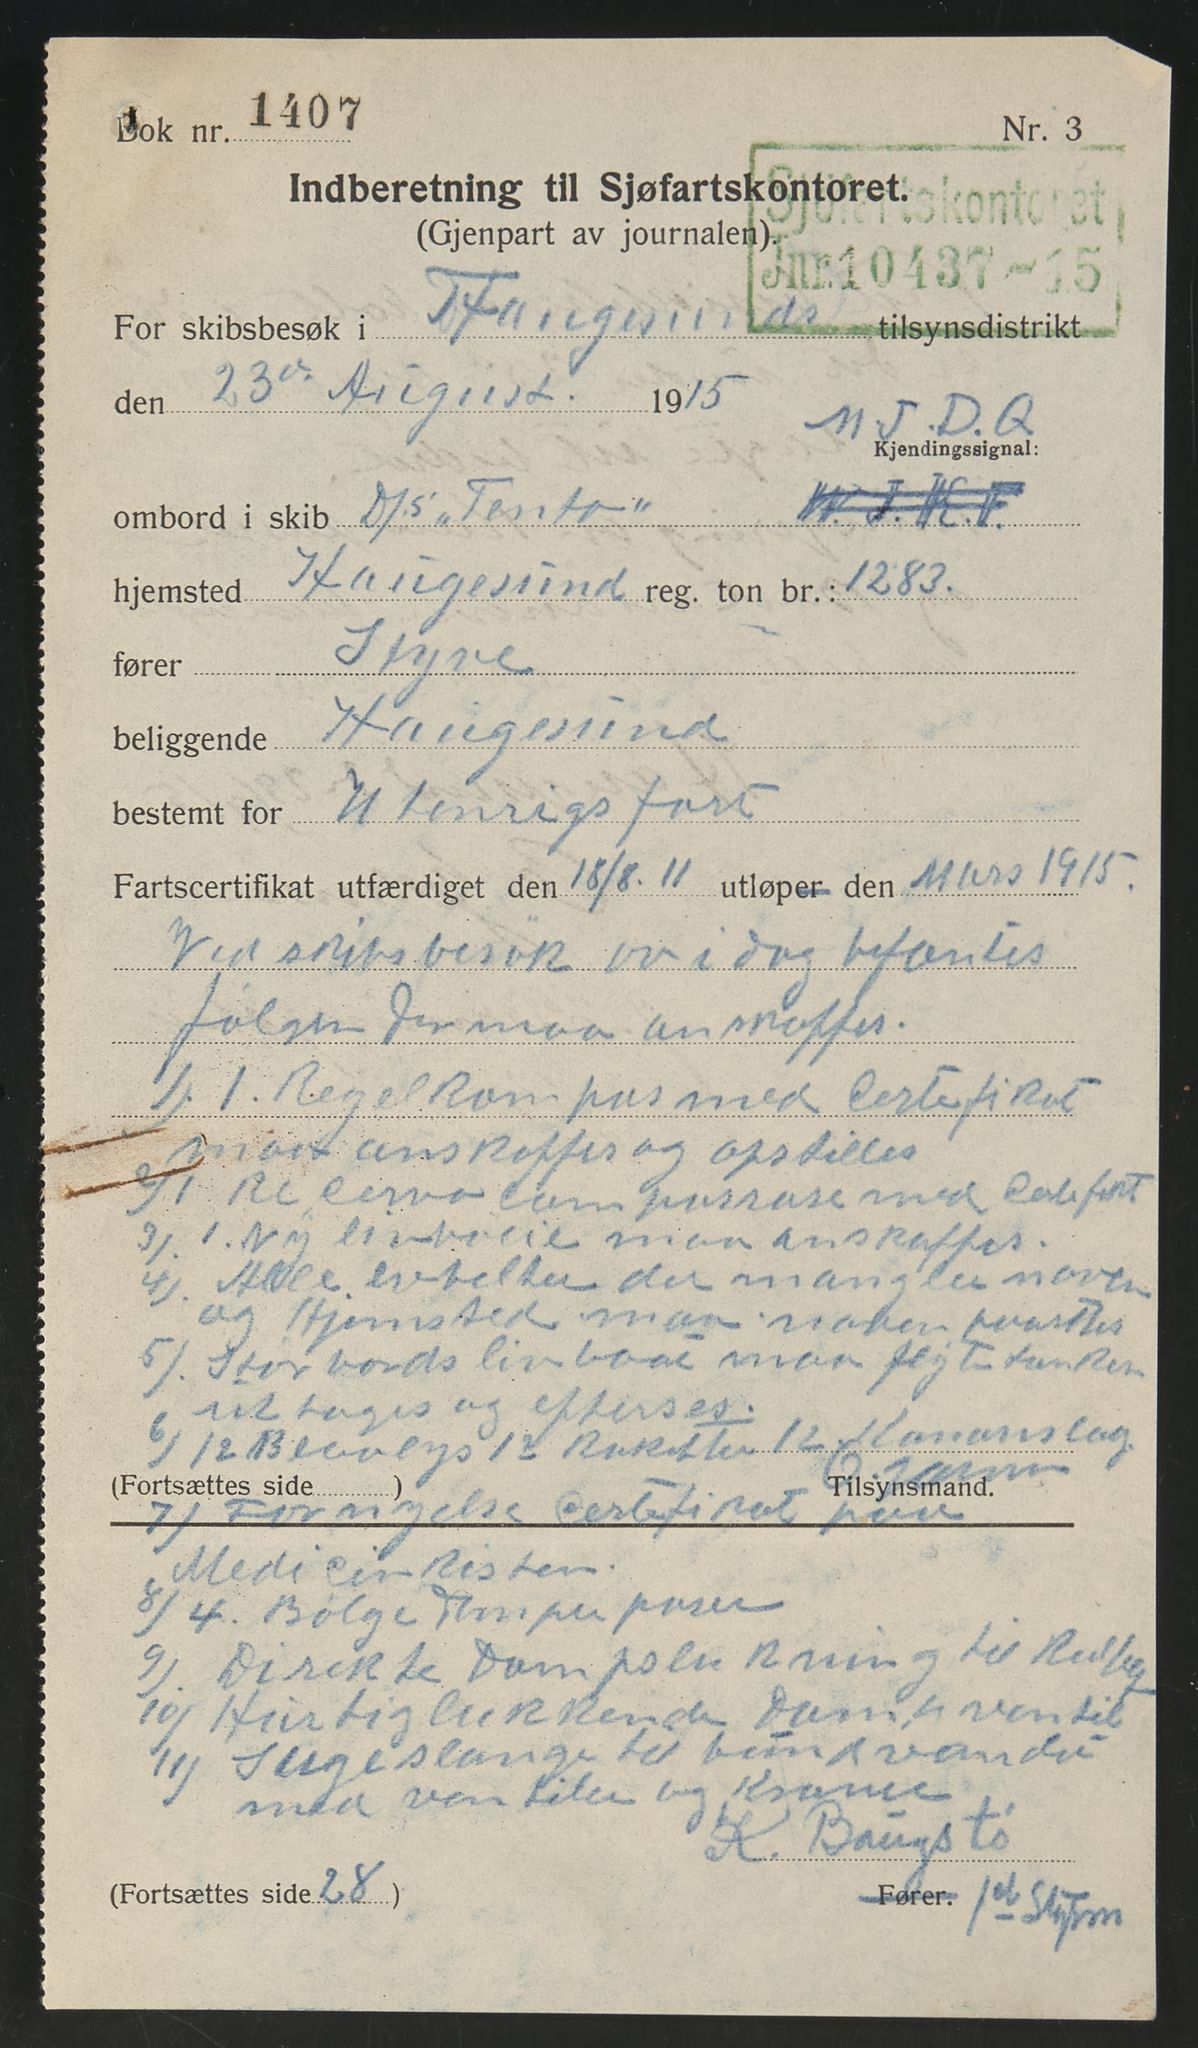 Bok nr. 1407
Nr. 3
Indberetning til Sjøfartskontoret.
(Gjenpart av journalen).
Sjøfartskontoret
Jnr. 10437-15
For skibsbesøk i Haugesunds tilsynsdistrikt
den 23de August. 1915
M. J. D. Q
Kjendingssignal:
ombord i skib D/S „Tento"
hjemsted Haugesund reg. ton br.: 1283.
fører Styve
beliggende Haugesund
bestemt for Utenrigsfart
Fartscertifikat utfærdiget den 18/8. 11 utløper den Mars 1915.
Ved skibsbesøk ov i dag befantes
følgen der maa anskaffes.
1). 1. Regelkompas med Certefikat
maa anskaffes og opstilles
2) 1. Recerva compasrose med
3). 1. Ny livboie maa anskaffes.
4). Alle livbelter der mangler navn
og Hjemsted maa naven paasettes
5). Storbords livbaat maa flytetanken
uttages og efterses.
6) 12 Blaalys 12 Raketter 12 Kanonslag.
(Fortsættes side )
Tilsynsmand.
7) Fornyelse Certefikat paa
Medicinkisten.
8) 4. Bølgedemper poser
9). Direkte Dampslukning til
10) Hurtiglukkende Dampventil
11) Sugeslange til bundvandet
med ventiler og Kraner
K. Baugstø
(Fortsættes side 28 )
Fører. 1st Styrm